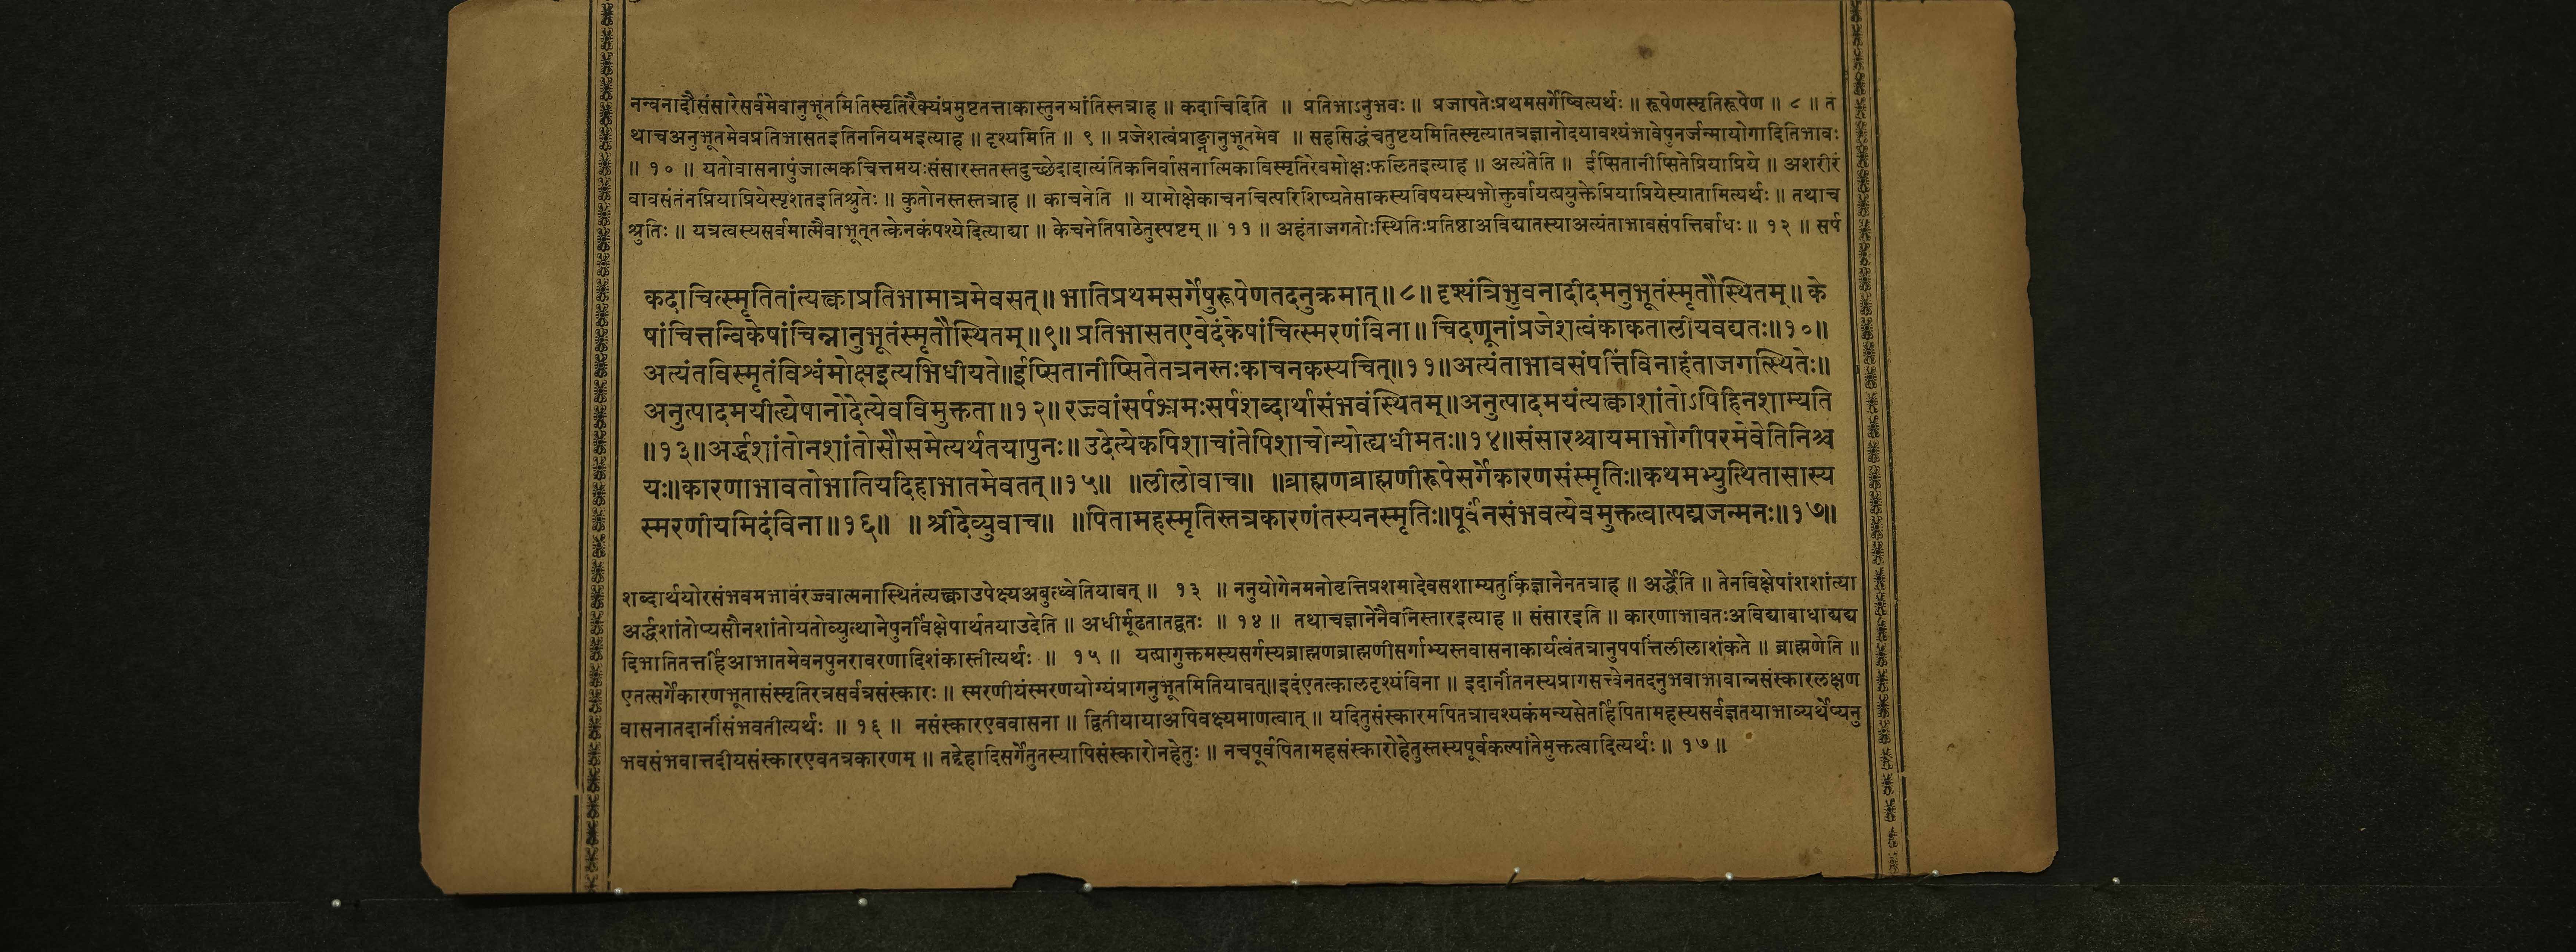 नन्वनादौसंसारेसर्वमेवानुभूतमितिस्मृतिरैक्यंप्रमुष्टतत्ताकास्तुनभ्रांतिस्तत्राह ॥ कदाचिदिति ॥ प्रतिभाऽनुभवः ॥ प्रजापतेःप्रथमसर्गेष्वित्यर्थः ॥ रूपेणस्मृतिरूपेण ॥ ८ ॥ त
थाचअनुभूतमेवप्रतिभासतइतिननियमइत्याह ॥ दृश्यमिति ॥ ९ ॥ प्रजेशत्वंप्राङ्नानुभूतमेव ॥ सहसिद्धंचतुष्टयमितिस्मृत्यातत्रज्ञानोदयावश्यंभावेपुनर्जन्मायोगादितिभावः
॥ १० ॥ यतोवासनापुंजात्मकचित्तमयःसंसारस्ततस्तदुच्छेदादात्यंतिकनिर्वासनात्मिकाविस्मृतिरेवमोक्षःफलितइत्याह ॥ अत्यंतेति ॥ ईप्सितानीप्सितेप्रियाप्रिये ॥ अशरीरं
वावसंतंनप्रियाप्रियेस्पृशतइतिश्रुतेः ॥ कुतोनस्तस्तत्राह ॥ काचनेति ॥ यामोक्षेकाचनचित्परिशिष्यतेसाकस्यविषयस्यभोक्तुर्वायत्प्रयुक्तेप्रियाप्रियेस्यातामित्यर्थः ॥ तथाच
श्रुतिः ॥ यत्रत्वस्यसर्वमात्मैवाभूत्तत्केनकंपश्येदित्याद्या ॥ केचनेतिपाठेतुस्पष्टम् ॥ ११ ॥ अहंताजगतोःस्थितिःप्रतिष्ठाअविद्यातस्याअत्यंताभावसंपत्तिर्बाधः ॥ १२ ॥ सर्प
कदाचित्स्मृतितांत्यक्त्वाप्रतिभामात्रमेवसत् ॥ भातिप्रथमसर्गेषुरूपेणतदनुक्रमात् ॥ ८ ॥ दृश्यंत्रिभुवनादीदमनुभूतंस्मृतौस्थितम् ॥ के
षांचित्तन्विकेषांचिन्नानुभूतंस्मृतौस्थितम् ॥ ९ ॥ प्रतिभासतएवेदंकेषांचित्स्मरणंविना ॥ चिदणूनांप्रजेशत्वंकाकतालीयवद्यतः ॥ १० ॥
अत्यंतविस्मृतंविश्वंमोक्षइत्यभिधीयते ॥ ईप्सितानीप्सितेतत्रनस्तःकाचनकस्यचित् ॥ ११ ॥ अत्यंताभावसंपत्तिंविनाहंताजगत्स्थितेः ॥
अनुत्पादमयीह्येषानोदेत्येवविमुक्तता ॥ १२ ॥ रज्ज्वांसर्पभ्रमःसर्पशब्दार्थासंभवंस्थितम् ॥ अनुत्पादमयंत्यक्त्वाशांतोऽपिहिनशाम्यति
॥ १३ ॥ अर्द्धशांतोनशांतोसौसमेत्यर्थतयापुनः ॥ उदेत्येकपिशाचांतेपिशाचोन्योह्यधीमतः ॥ १४ ॥ संसारश्चायमाभोगीपरमेवेतिनिश्च
यः ॥ कारणाभावतोभातियदिहाभातमेवतत् ॥ १५ ॥ ॥ लीलोवाच ॥ ॥ ब्राह्मणब्राह्मणीरूपेसर्गेकारणसंस्मृतिः ॥ कथमभ्युत्थितासास्य
स्मरणीयमिदंविना ॥ १६ ॥ ॥ श्रीदेव्युवाच ॥ ॥ पितामहस्मृतिस्तत्रकारणंतस्यनस्मृतिः ॥ पूर्वंनसंभवत्येवमुक्तत्वात्पद्मजन्मनः ॥ १७ ॥
शब्दार्थयोरसंभवमभावंरज्ज्वात्मनास्थितंत्यक्त्वाउपेक्ष्यअबुध्वेतियावत् ॥ १३ ॥ ननुयोगेनमनोवृत्तिप्रशमादेवसशाम्यतुकिंज्ञानेनतत्राह ॥ अर्द्धेति ॥ तेनविक्षेपांशशांत्या
अर्द्धशांतोप्यसौनशांतोयतोव्युत्थानेपुनर्विक्षेपार्थतयाउदेति ॥ अधीर्मूढतातद्वतः ॥ १४ ॥ तथाचज्ञानेनैवनिस्तारइत्याह ॥ संसारइति ॥ कारणाभावतःअविद्याबाधाद्यद्य
दिभातितत्तर्हिआभातमेवनपुनरावरणादिशंकास्तीत्यर्थः ॥ १५ ॥ यत्प्रागुक्तमस्यसर्गस्यब्राह्मणब्राह्मणीसर्गाभ्यस्तवासनाकार्यत्वंतत्रानुपपत्तिंलीलाशंकते ॥ ब्राह्मणेति ॥
एतत्सर्गेकारणभूतासंस्मृतिरत्रसर्वत्रसंस्कारः ॥ स्मरणीयंस्मरणयोग्यंप्रागनुभूतमितियावत् ॥ इदंएतत्कालदृश्यंविना ॥ इदानींतनस्यप्रागसत्त्वेनतदनुभवाभावान्नसंस्कारलक्षण
वासनातदानींसंभवतीत्यर्थः ॥ १६ ॥ नसंस्कारएववासना ॥ द्वितीयायाअपिवक्ष्यमाणत्वात् ॥ यदितुसंस्कारमपितत्रावश्यकंमन्यसेतर्हिपितामहस्यसर्वज्ञतयाभाव्यर्थेप्यनु
भवसंभवात्तदीयसंस्कारएवतत्रकारणम् ॥ तद्देहादिसर्गेतुतस्यापिसंस्कारोनहेतुः ॥ नचपूर्वपितामहसंस्कारोहेतुस्तस्यपूर्वकल्पांतेमुक्तत्वादित्यर्थः ॥ १७ ॥